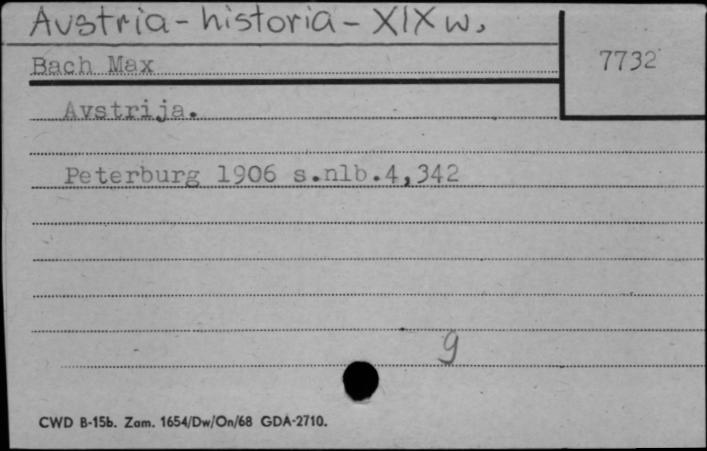 Austria - historia - XIX w.
Bach Max
7732
Avstrija.
Peterburg 1906 s.nlb.4,342
g
CWD B-15b. Zam. 1654/Dw/On/68 GDA-2710.